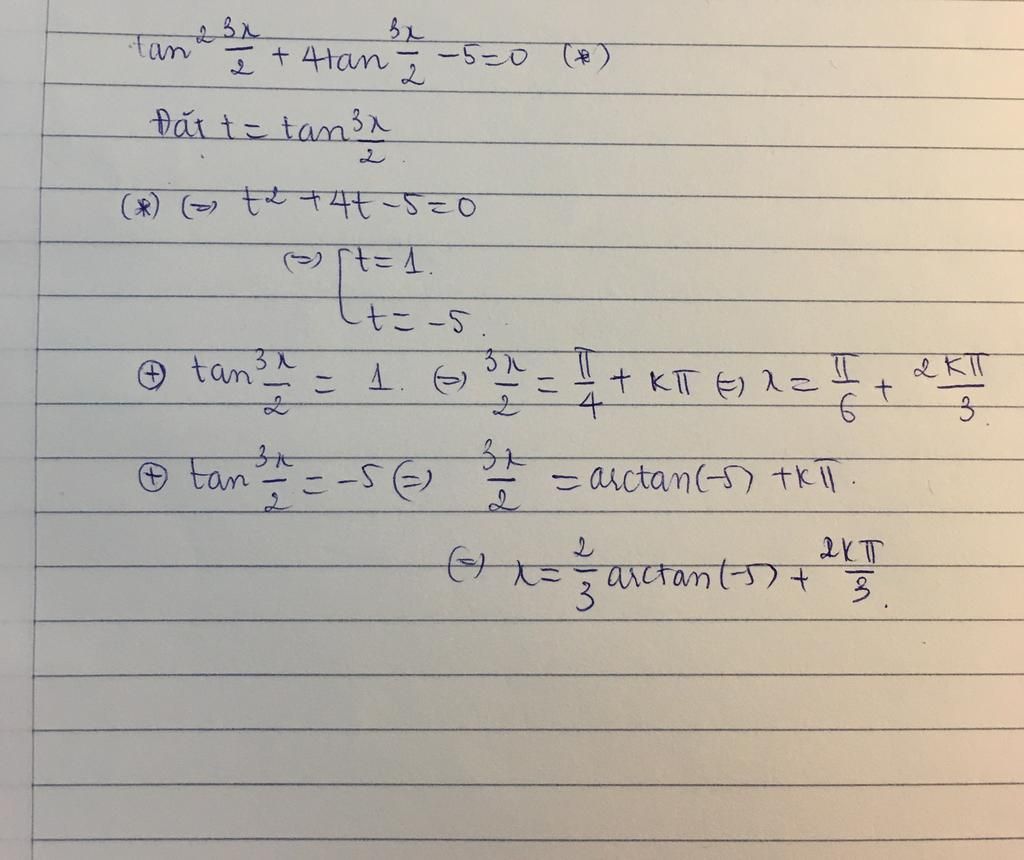 tan² 3x/2 + 4tan 3x/2 - 5 = 0 (*)
Đặt t = tan 3x/2
(*) (=) t² + 4t - 5 = 0
(=) [ t = 1.
t = -5.
⊕ tan 3x/2 = 1. (=) 3x/2 = π/4 + kπ (=) x = π/6 + 2kπ/3.
⊕ tan 3x/2 = -5 (=) 3x/2 = arctan(-5) + kπ.
(=) x = 2/3 arctan(-5) + 2kπ/3.